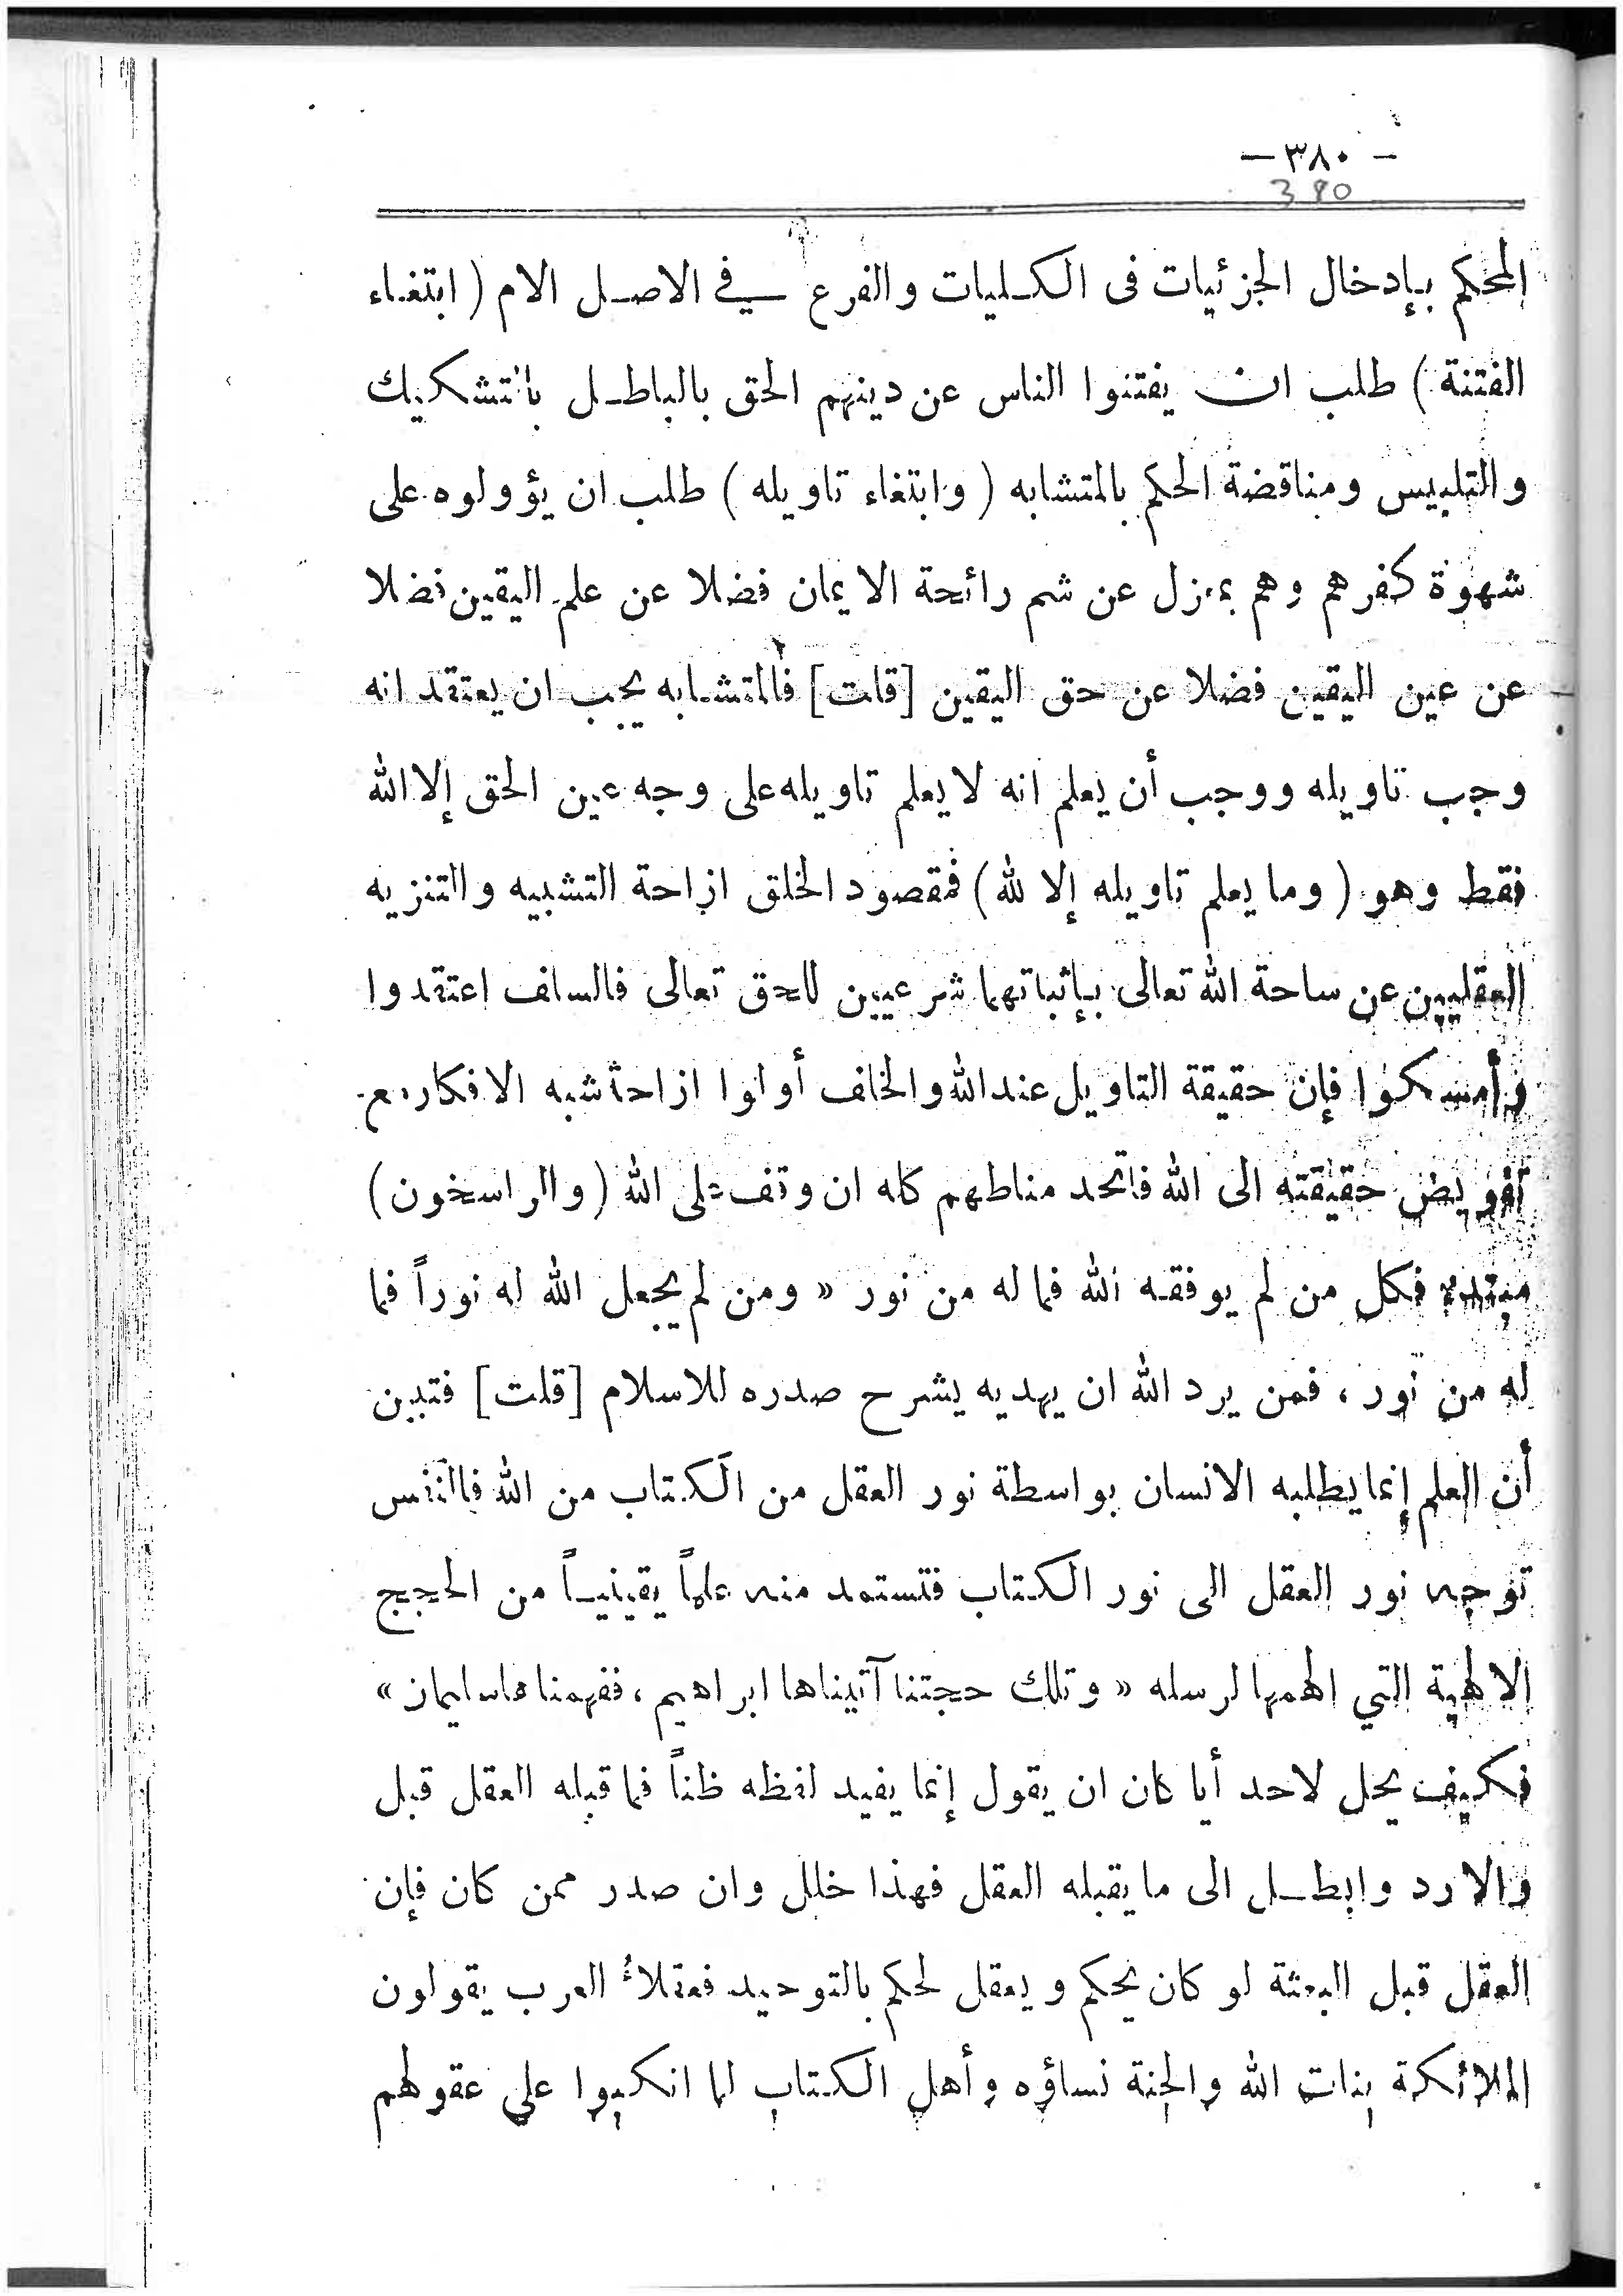 - ٣٨٠ -
380
المحكم بإدخال الجزئيات فى الكليات والفرع في الاصل الام ( ابتغاء
الفتنة ) طلب ان يفتنوا الناس عن دينهم الحق بالباطل بالتشكيك
والتلبيس ومناقضة الحكم بالمتشابه ( وابتغاء تاويله ) طلب ان يؤولوه على
شهوة كفرهم وهم بمعزل عن شم رائحة الايمان فضلا عن علم اليقين فضلا
عن عين اليقين فضلا عن حق اليقين [قلت] فالمتشابه يجب ان يعتقد انه
وجب تاويله ووجب أن يعلم انه لا يعلم تاويله على وجه عين الحق إلا الله
فقط وهو ( وما يعلم تاويله إلا لله ) فمقصود الخلق ازاحة التشبيه والتنزيه
العقليين عن ساحة الله تعالى بإثباتهما شرعيين للحق تعالى فالسلف اعتقدوا
وأمسكوا فإن حقيقة التاويل عند الله والخلف أولوا ازاحة شبه الافكار مع
تفويض حقيقته الى الله فاتحد مناطهم كله ان وقف على الله ( والراسخون )
مبتدء فكل من لم يوفقه الله فما له من نور « ومن لم يجعل الله له نوراً فما
له من نور ، فمن يرد الله ان يهديه يشرح صدره للاسلام [قلت] فتبين
أن العلم إنما يطلبه الانسان بواسطة نور العقل من الكتاب من الله فالنفس
توجه نور العقل الى نور الكتاب فتستمد منه علماً يقينيـاً من الحجج
الالهية التي الهمها لرسله « وتلك حجتنا آتيناها ابراهيم ، ففهمناها سليمان »
فكيف يحل لاحد أيا كان ان يقول إنما يفيد لفظه ظناً فما قبله العقل قبل
والا رد وابطل الى ما يقبله العقل فهذا خلل وان صدر ممن كان فإن
العقل قبل البعثة لو كان يحكم ويعقل لحكم بالتوحيد فعقلاءُ العرب يقولون
الملائكة بنات الله والجنة نساؤه وأهل الكتاب لما انكبوا على عقولهم